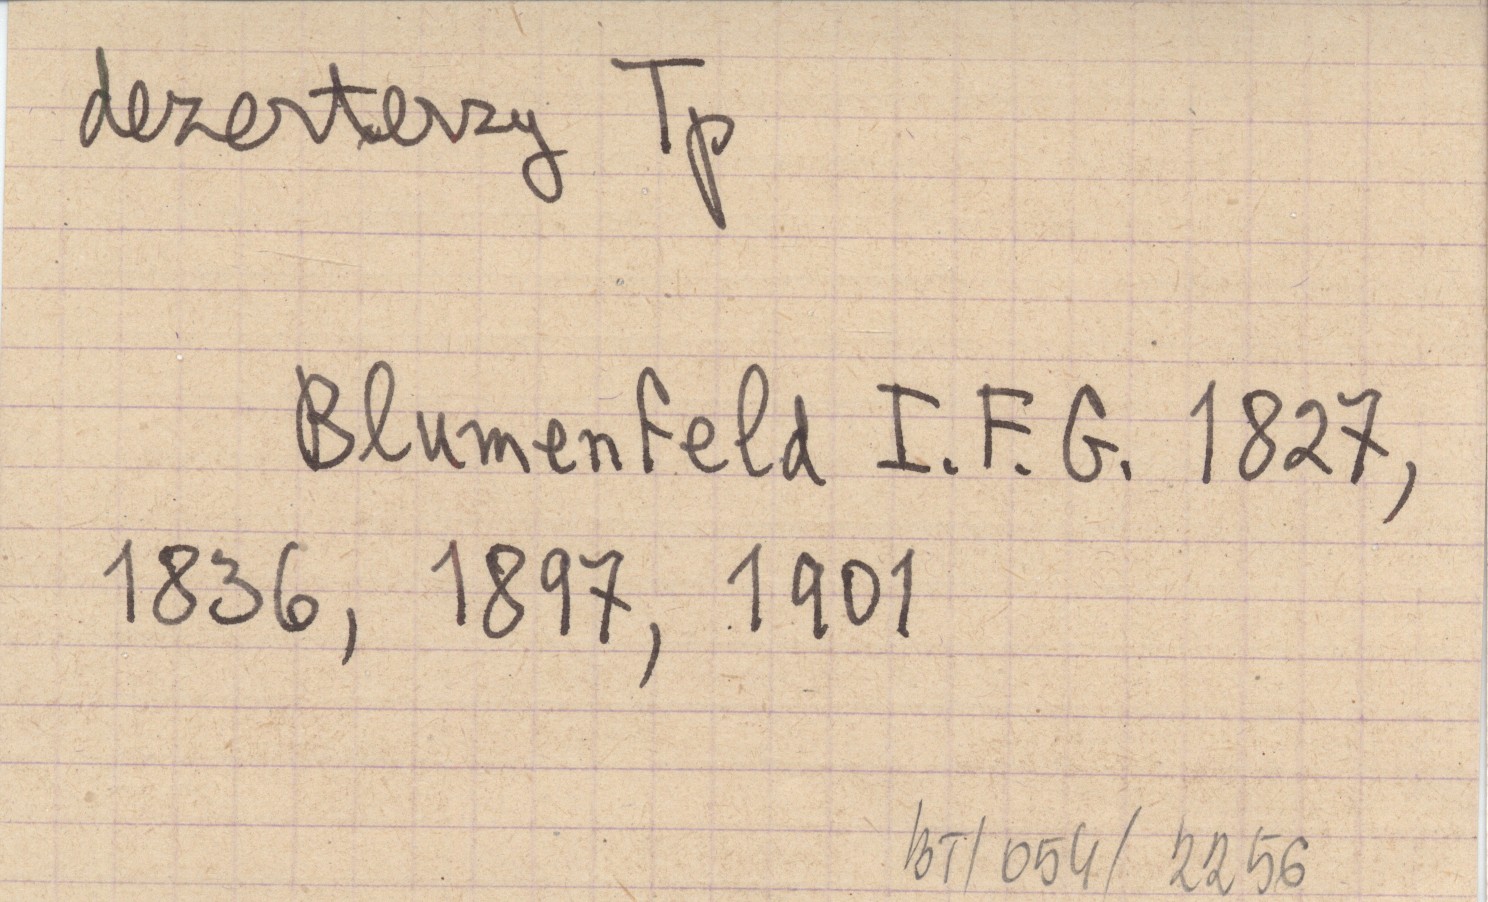 dezerterzy Tp
Blumenfeld I.F.G. 1827,
1836, 1897, 1901
BT/054/2256